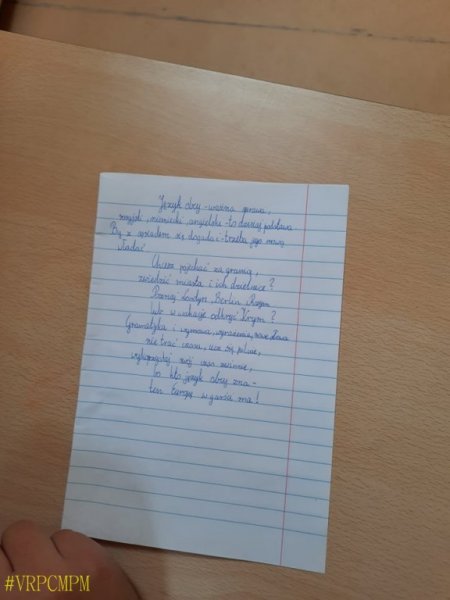 Język obcy - ważna sprawa,
rosyjski, niemiecki, angielski - to dzisiaj podstawa.
By z sąsiadem się dogadać - trzeba jego mową
władać
Chcesz pojechać za granicę,
zwiedzić miasta i ich dzielnice?
Poznać Londyn, Berlin, Rzym
lub w wakacje odkryć Krym?
Gramatyka i wymowa, wyrażenia, nowe słowa
nie trać czasu, ucz się pilnie,
wykorzystaj swój czas
bo kto język obcy zna -
ten Europę w garści ma!
#VRPCMPM